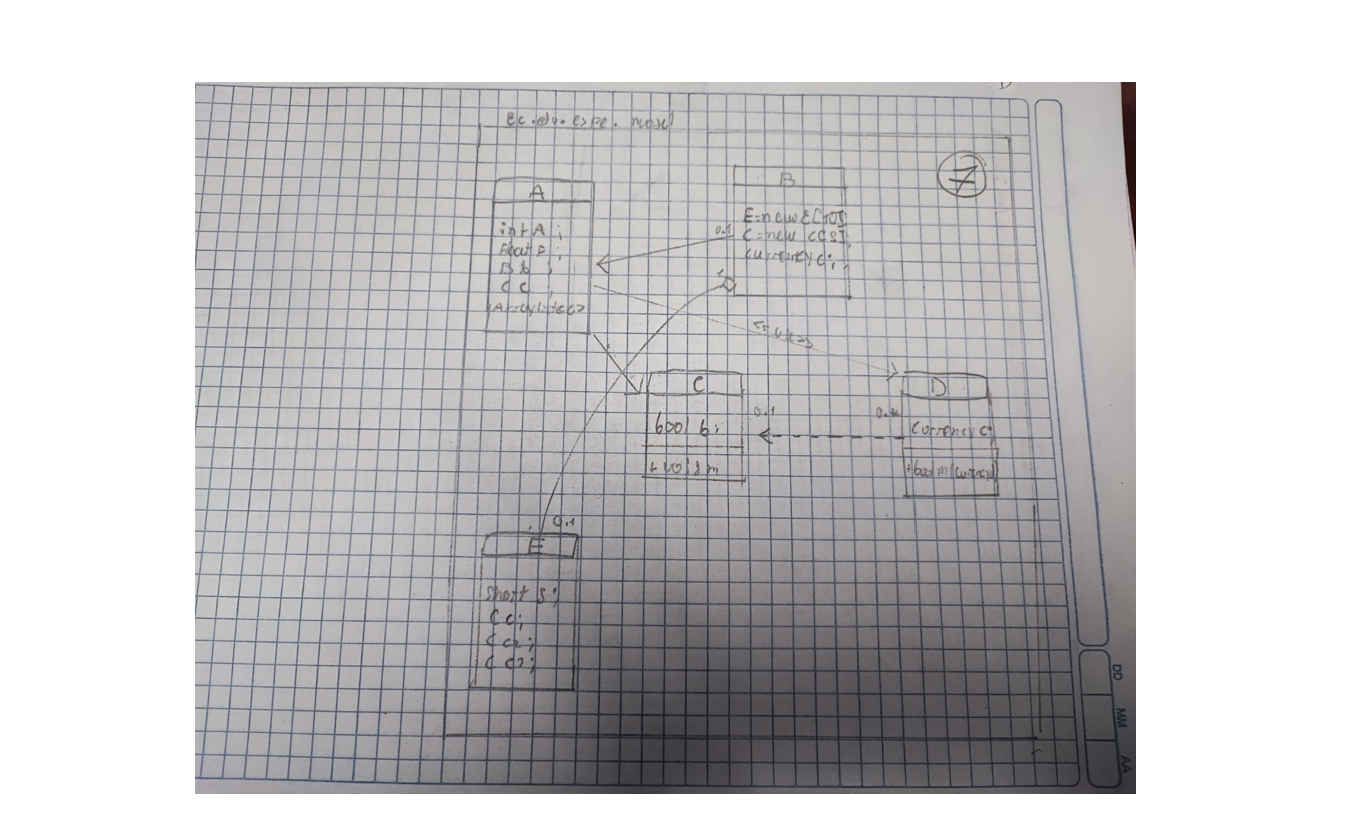 Ec.edu.espe.mosl
7
A
int A;
float F;
B b;
C c;
B
E=new E[10];
C=new C[8];
currency c;
0.1
1
<<use>>
C
bool b;
+void m
0.1
D
currency c;
+bool m (currency)
0.1
E
short s;
C c;
C c2;
C c3;
DD
MM
AA